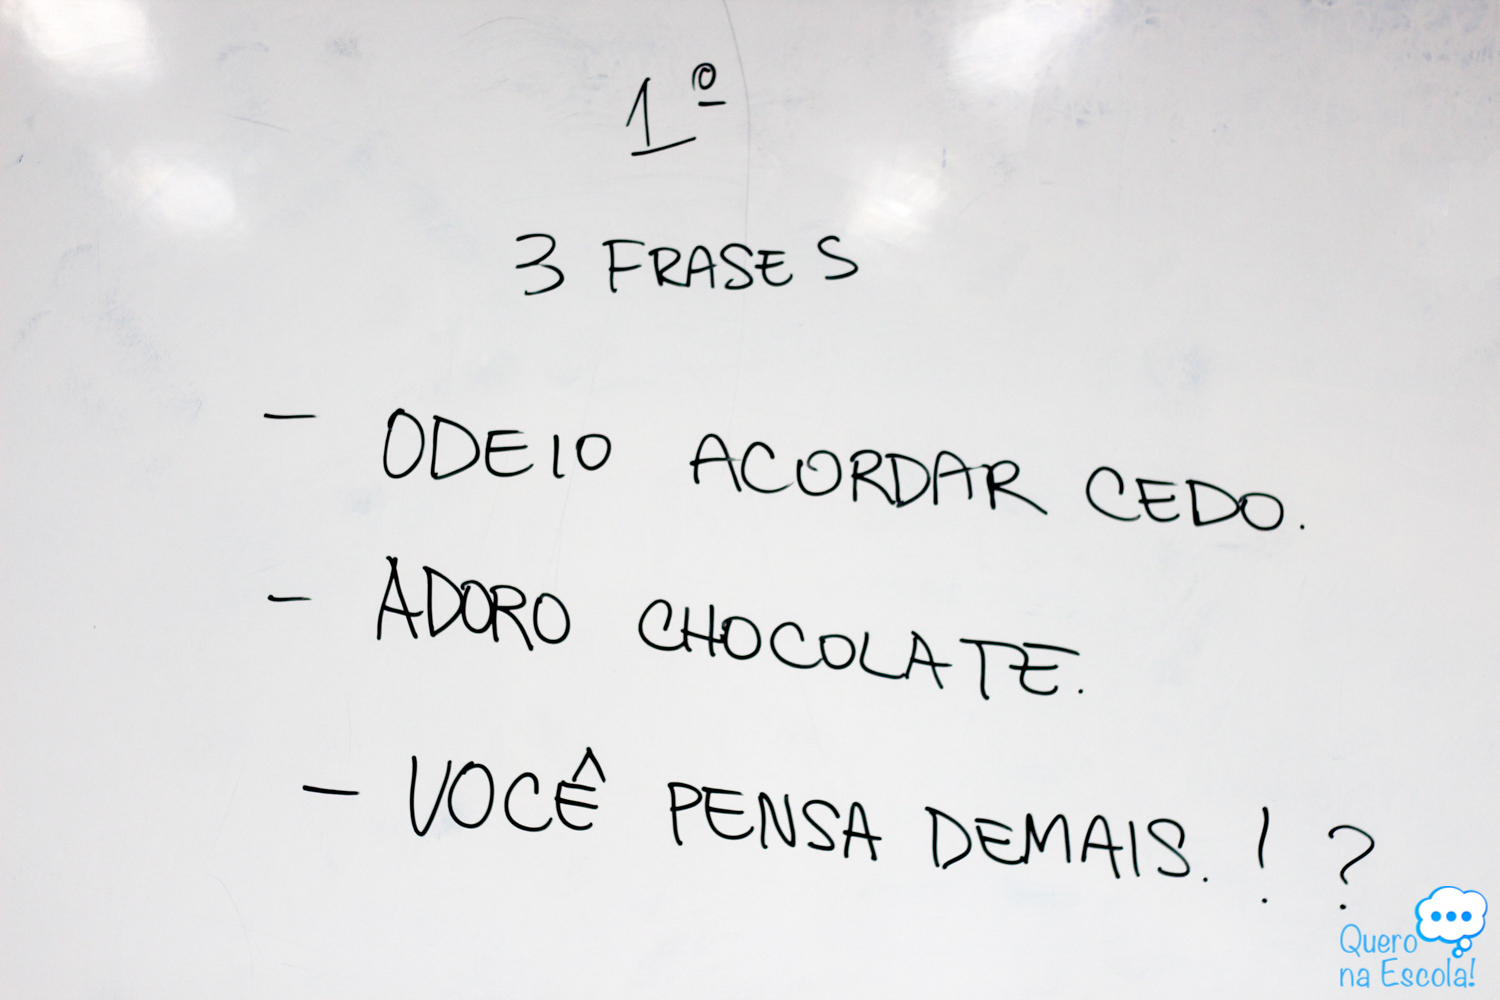 1º
3 FRASES
- ODEIO ACORDAR CEDO.
- ADORO CHOCOLATE.
- VOCÊ PENSA DEMAIS. ! ?
Quero
na Escola!